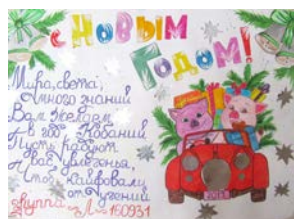 С Новым
Годом!
Мира, света,
Много знаний
Вам желаем
в год Кабаний.
Пусть радуют
Вас увлеченья,
Чтоб кайфовали
от учений
группа Л-160931